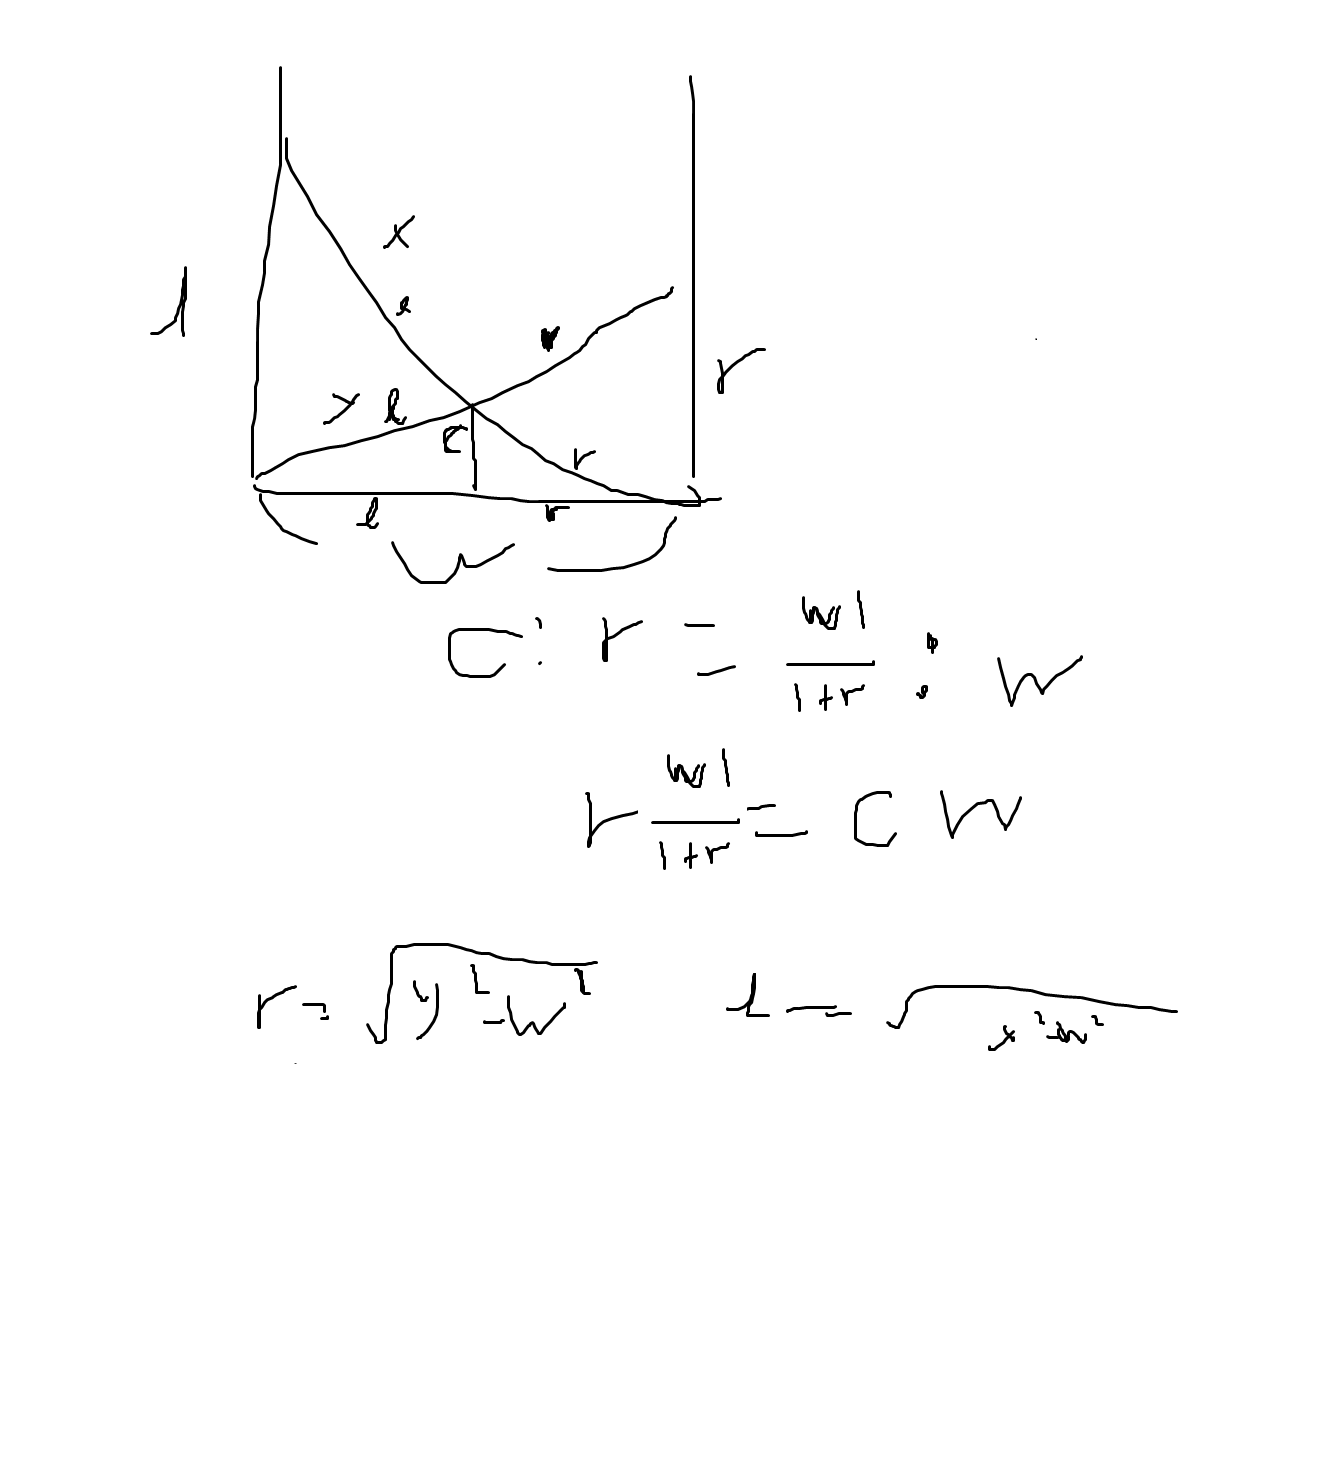 x
l
l
r
r
y l
c
r
l r
w
c : r = wl/l+r : w
r wl/l+r = c w
r = √y²-w² l = √x²-w²